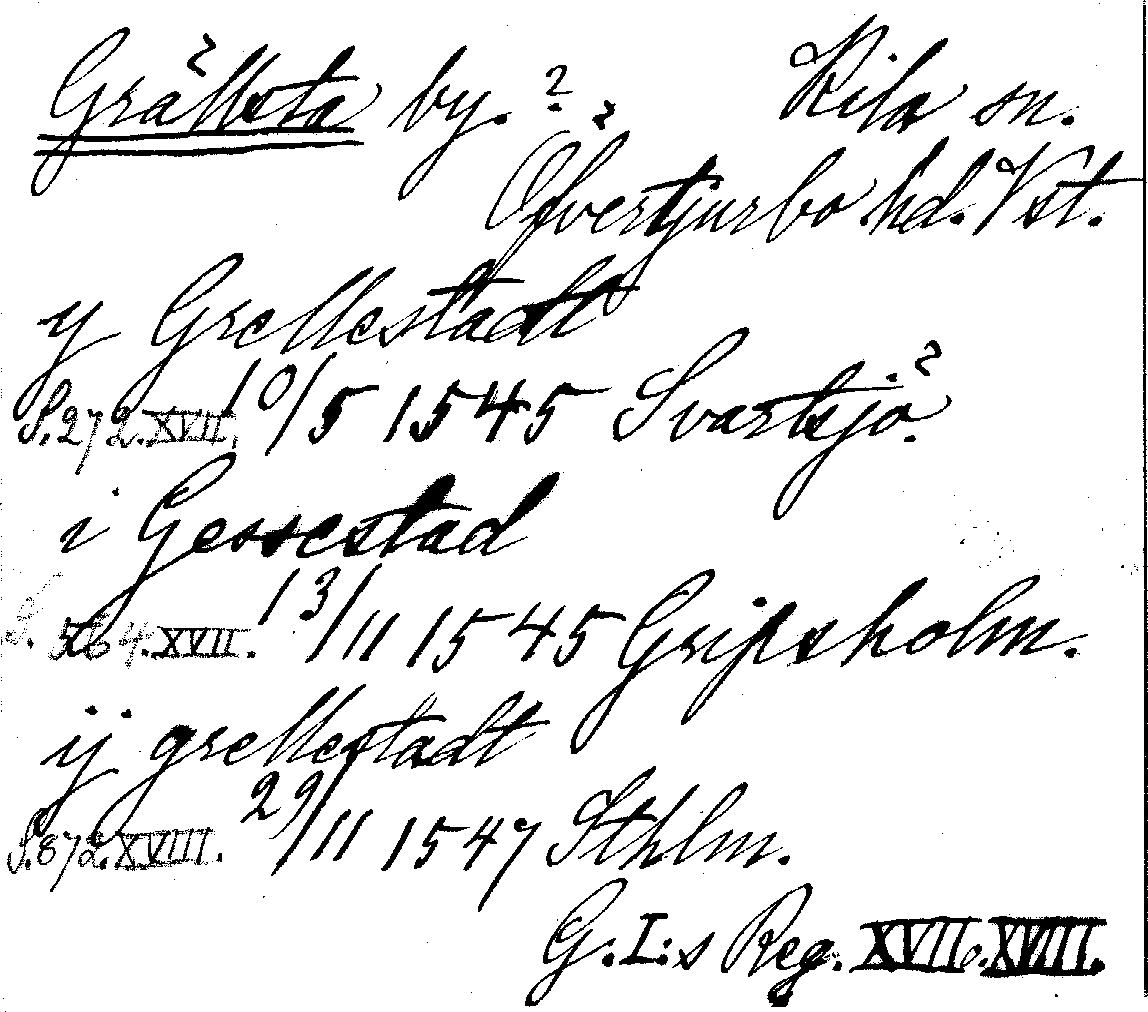 Grällsta by. ? Kila sn.
Öfvertjurbo hd. Vst.
y Grellestadt
S. 272. XVII. 10/5 1545 Svartsjö.
i Gessestad
S. 564. XVII. 13/11 1545 Gripsholm.
ij grellestadt
S. 872. XVIII. 29/11 1547 Sthlm.
G. I:s Reg. XVII o. XVIII.